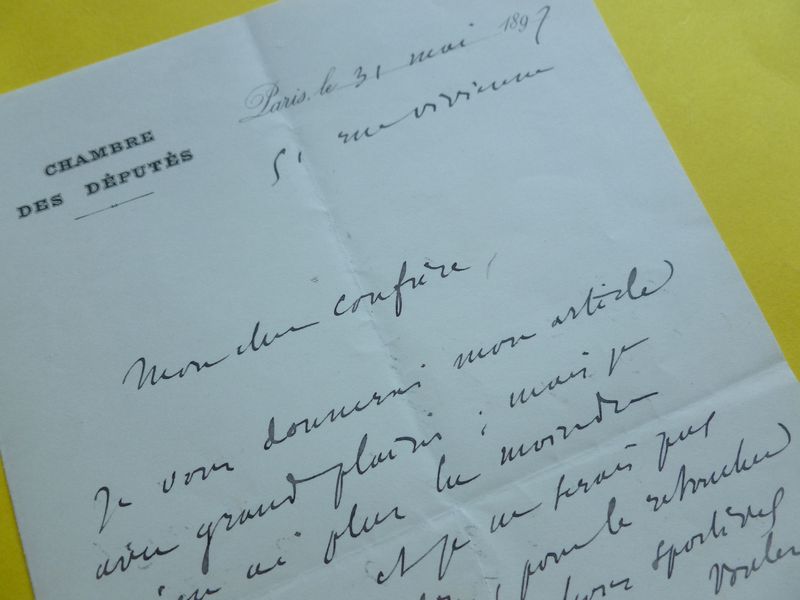 CHAMBRE
DES DÉPUTÈS
Paris, le 31 mai 1897
51 rue vivienne
Mon cher confrère,
Je vous donnerai mon article
avec grand plaisir ; mais je
n'en ai plus la moindre
et je ne serais pas
pour le retoucher
sportives